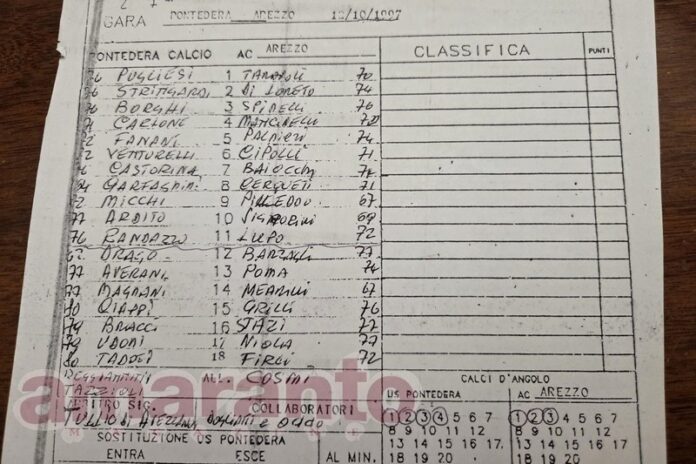 GARA PONTEDERA AREZZO 12/10/1997
PONTEDERA CALCIO AC AREZZO CLASSIFICA PUNTI
76 PUGLIESI 1 70
2 DI LORETO 74
76 BORGHI 3 SPINELLI 76
CARLONE 4 MANCINELLI
FANANI 5 PALMIERI 74
VENTURELLI 6 CIPOLLI 71
CASTORINA 7 BAIOCCHI
GARFAGNINI 8 CERQUETI 71
MICCHI 9 PILLEDDU 67
77 ARDITO 10 SIGNORINI 69
76 RANDAZZO 11 LUPO 72
DRAGO 12 BARZAGLI 77
77 AVERANI 13 POMA 74
77 MAGNANI 14 MEARINI 67
80 CIAPPI 15 GRILLI 76
79 BRACCI 16 STAZI 77
79 UDORI 17 NIOLA 77
80 TADDEI 18 FIROI 72
REGGIANNINI ALL. COSMI
TAZZIOLI
amaranto
ARBITRO SIG. COLLABORATORI
TULLIO DI AVEZZANO
SOSTITUZIONE US PONTEDERA
ENTRA ESCE AL MIN.
CALCI D'ANGOLO
US PONTEDERA AC AREZZO
1 2 3 4 5 6 7 1 2 3 4 5 6 7
8 9 10 11 12 8 9 10 11 12
13 14 15 16 17. 13 14 15 16 17.
18 19 20 18 19 20